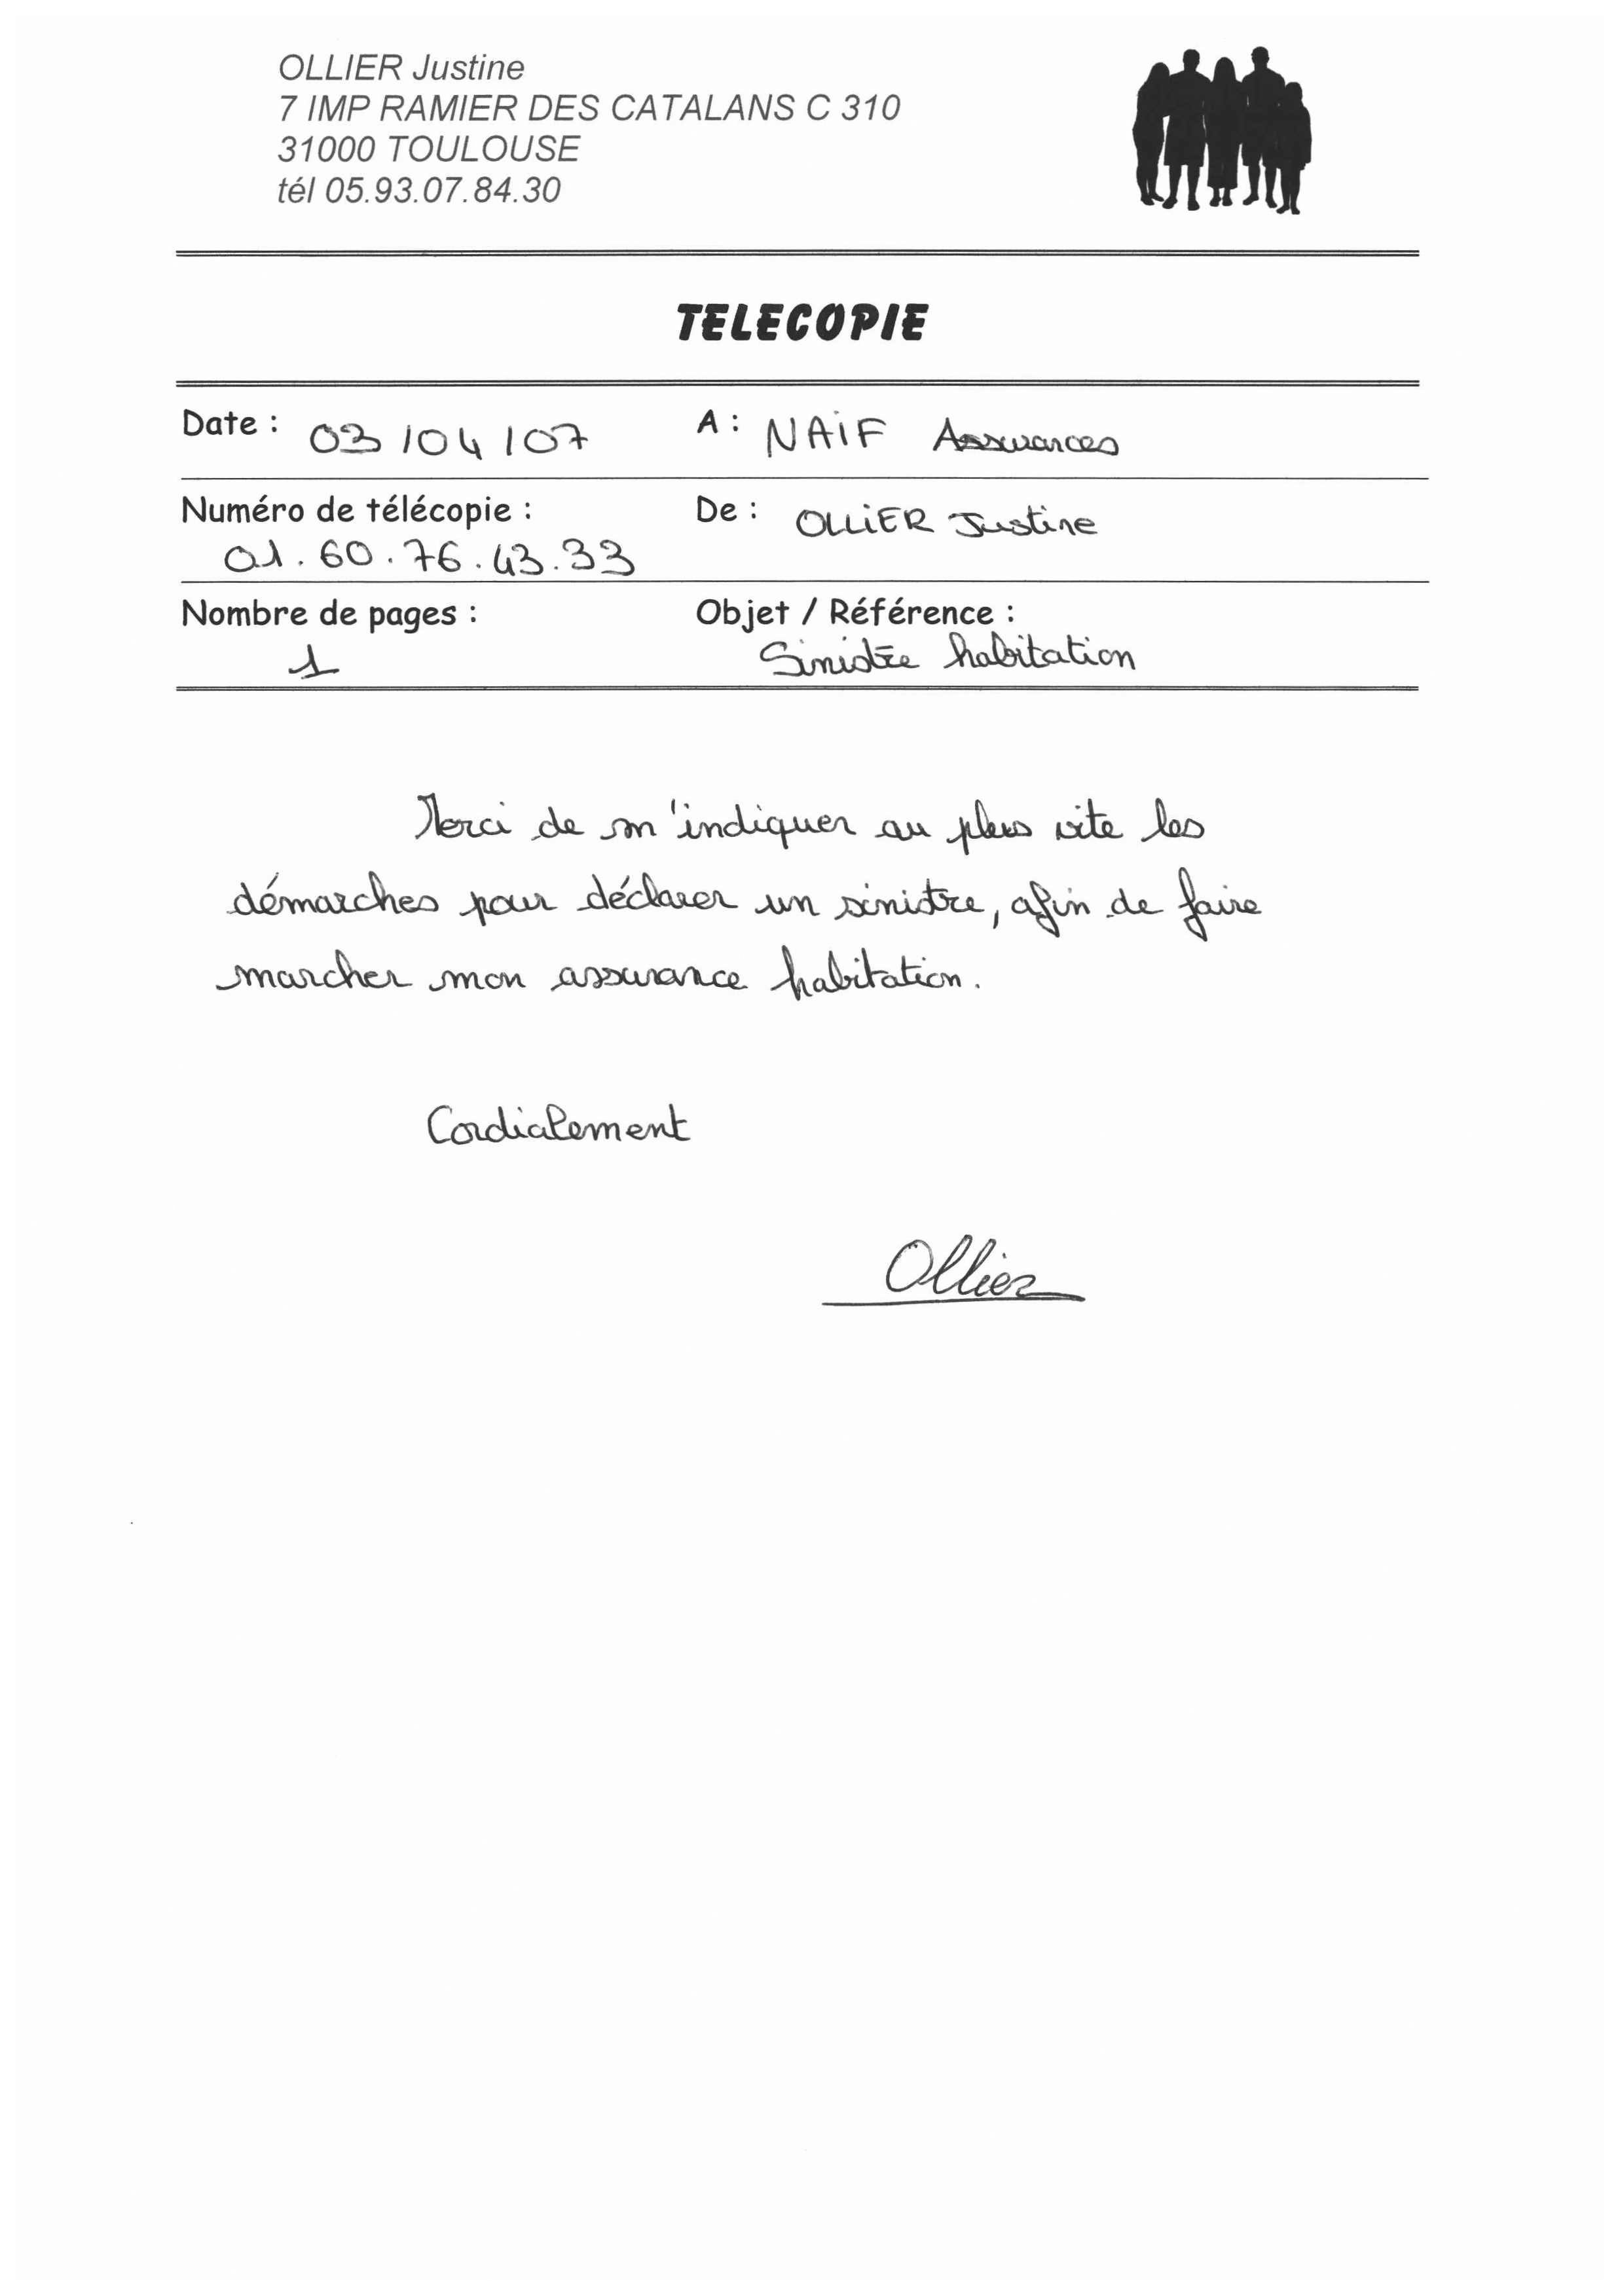 OLLIER Justine
7 IMP RAMIER DES CATALANS C 310
31000 TOULOUSE
tél 05.93.07.84.30
TELECOPIE
Date : 03/04/07 A : NAIF Assurances
Numéro de télécopie : De : OLLIER Justine
01.60.76.43.33
Nombre de pages : Objet / Référence :
1 Sinistre habitation
Merci de m'indiquer au plus vite les
démarches pour déclarer un sinistre, afin de faire
marcher mon assurance habitation.
Cordialement
Ollier